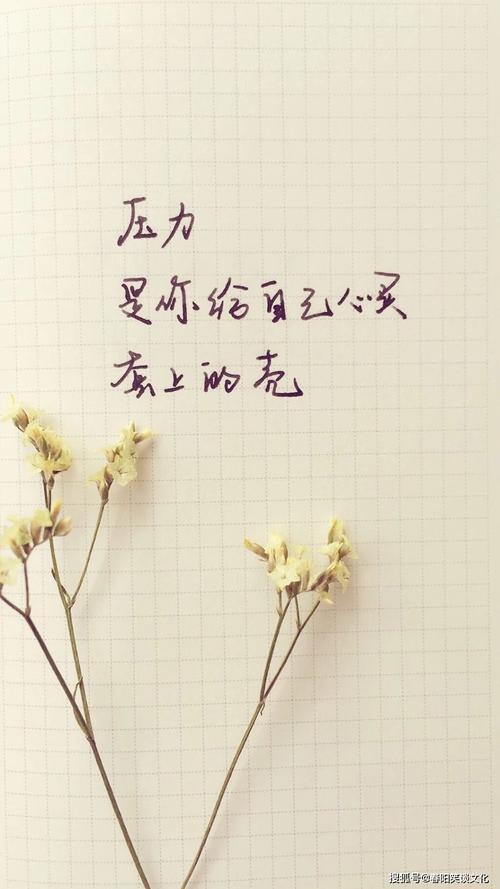 压力
是你给自己心灵
套上的壳
搜狐号@春阳笑谈文化